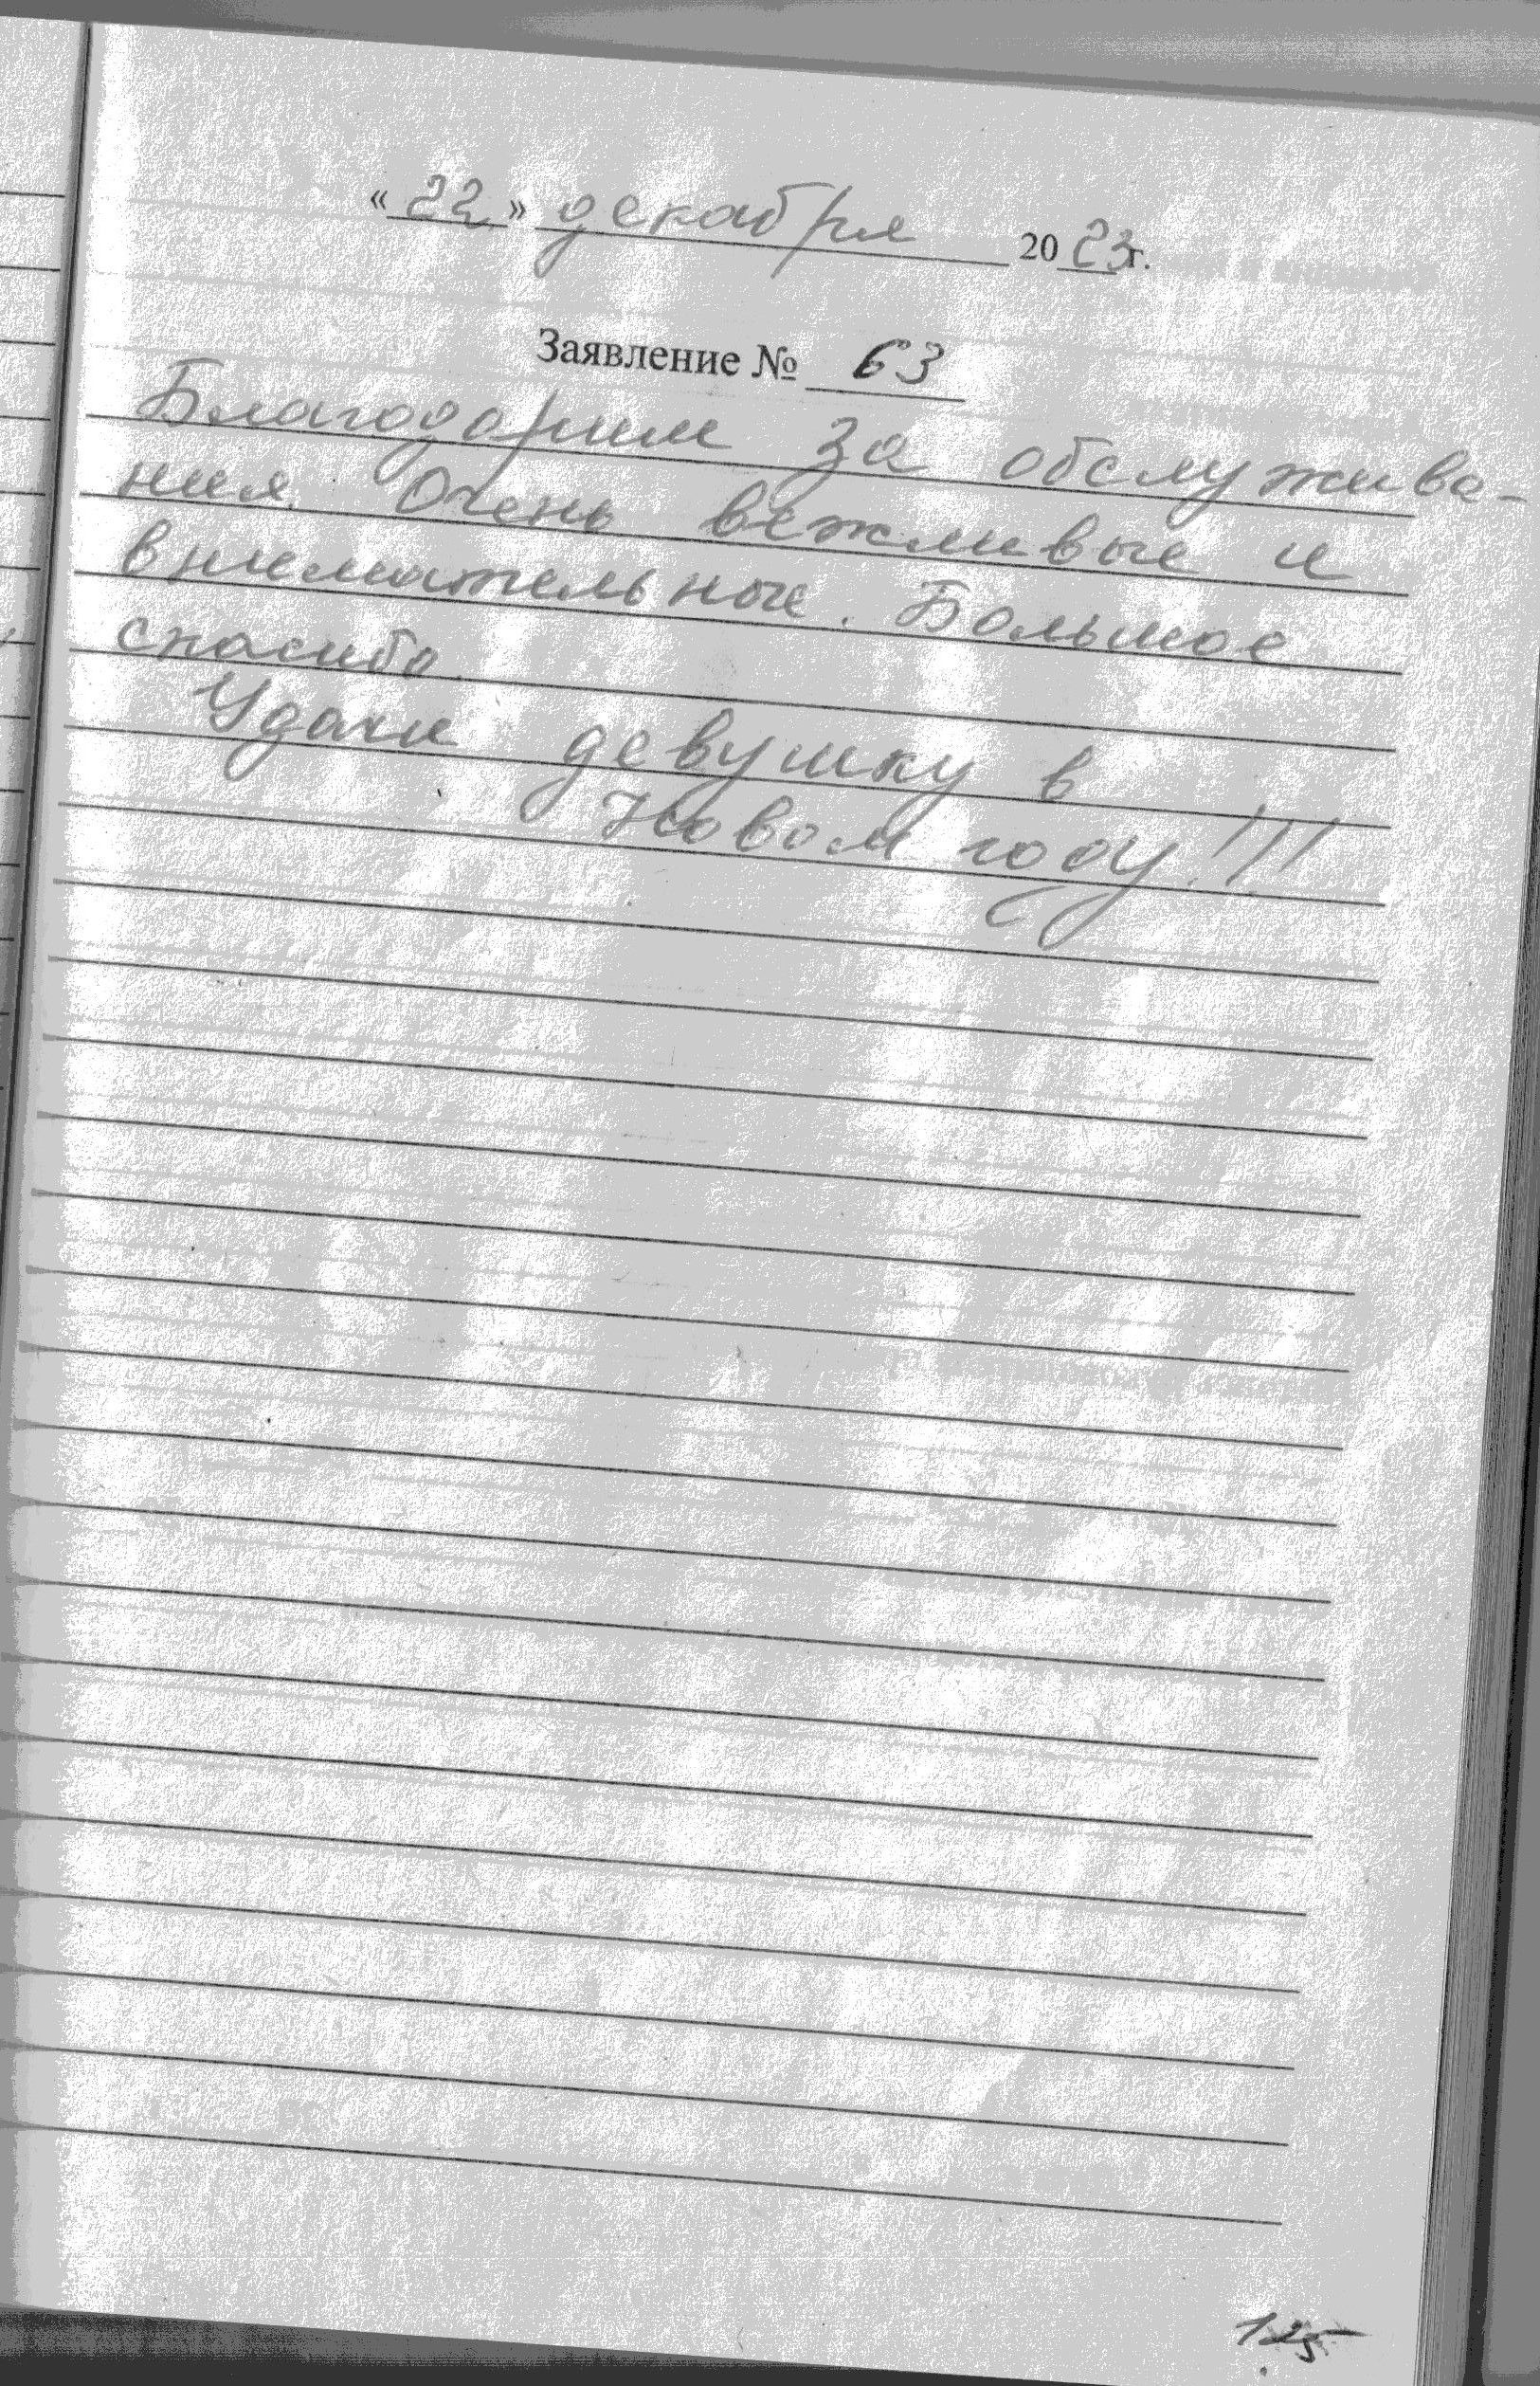 «22» декабря 2023г.
Заявление № 63
Благодарим за обслужива-
ния. Очень вежливые и
внимательные. Большое
спасибо.
Удачи девушку в
Новом году!!!
125